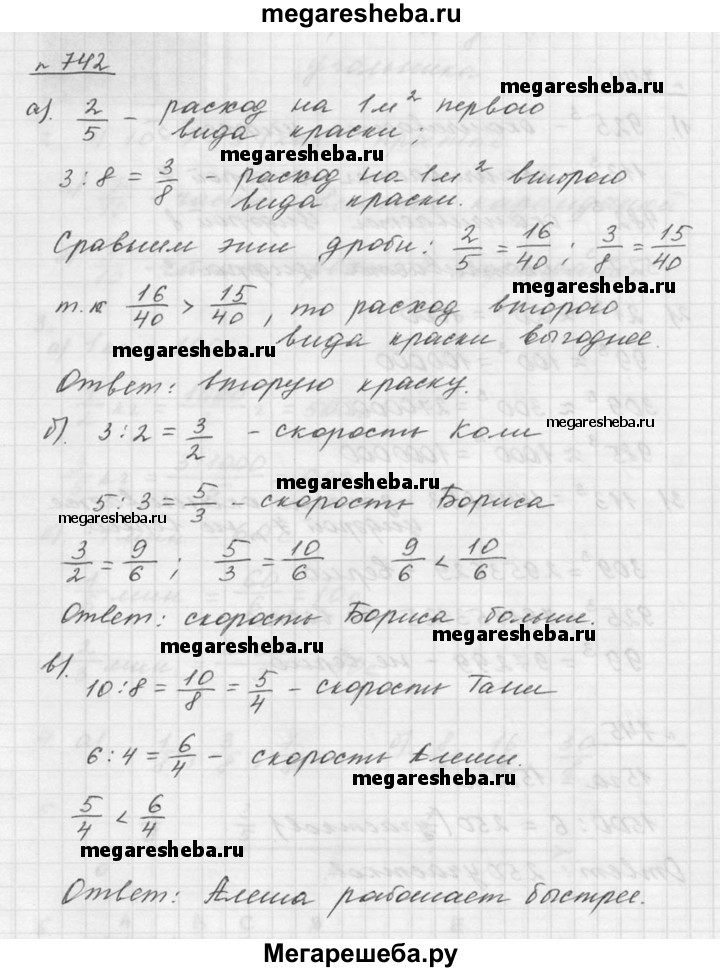 megaresheba.ru
п 742
megaresheba.ru
а). 2/5 - расход на 1м² первого
вида краски,
megaresheba.ru
3 : 8 = 3/8 - расход на 1м² второго
вида краски.
Сравним эти дроби: 2/5 = 16/40 ; 3/8 = 15/40
megaresheba.ru
т.к 16/40 > 15/40, то расход второго
вида краски выгоднее.
megaresheba.ru
Ответ: вторую краску.
megaresheba.ru
б). 3 : 2 = 3/2 - скорость Коли
megaresheba.ru
5 : 3 = 5/3 - скорость Бориса
megaresheba.ru
megaresheba.ru
3/2 = 9/6 ; 5/3 = 10/6 9/6 < 10/6
Ответ: скорость Бориса больше.
megaresheba.ru
megaresheba.ru
в).
10 : 8 = 10/8 = 5/4 - скорость Тани
6 : 4 = 6/4 - скорость Алеши.
megaresheba.ru
5/4 < 6/4
megaresheba.ru
Ответ: Алеша работает быстрее.
Мегарешеба.ру